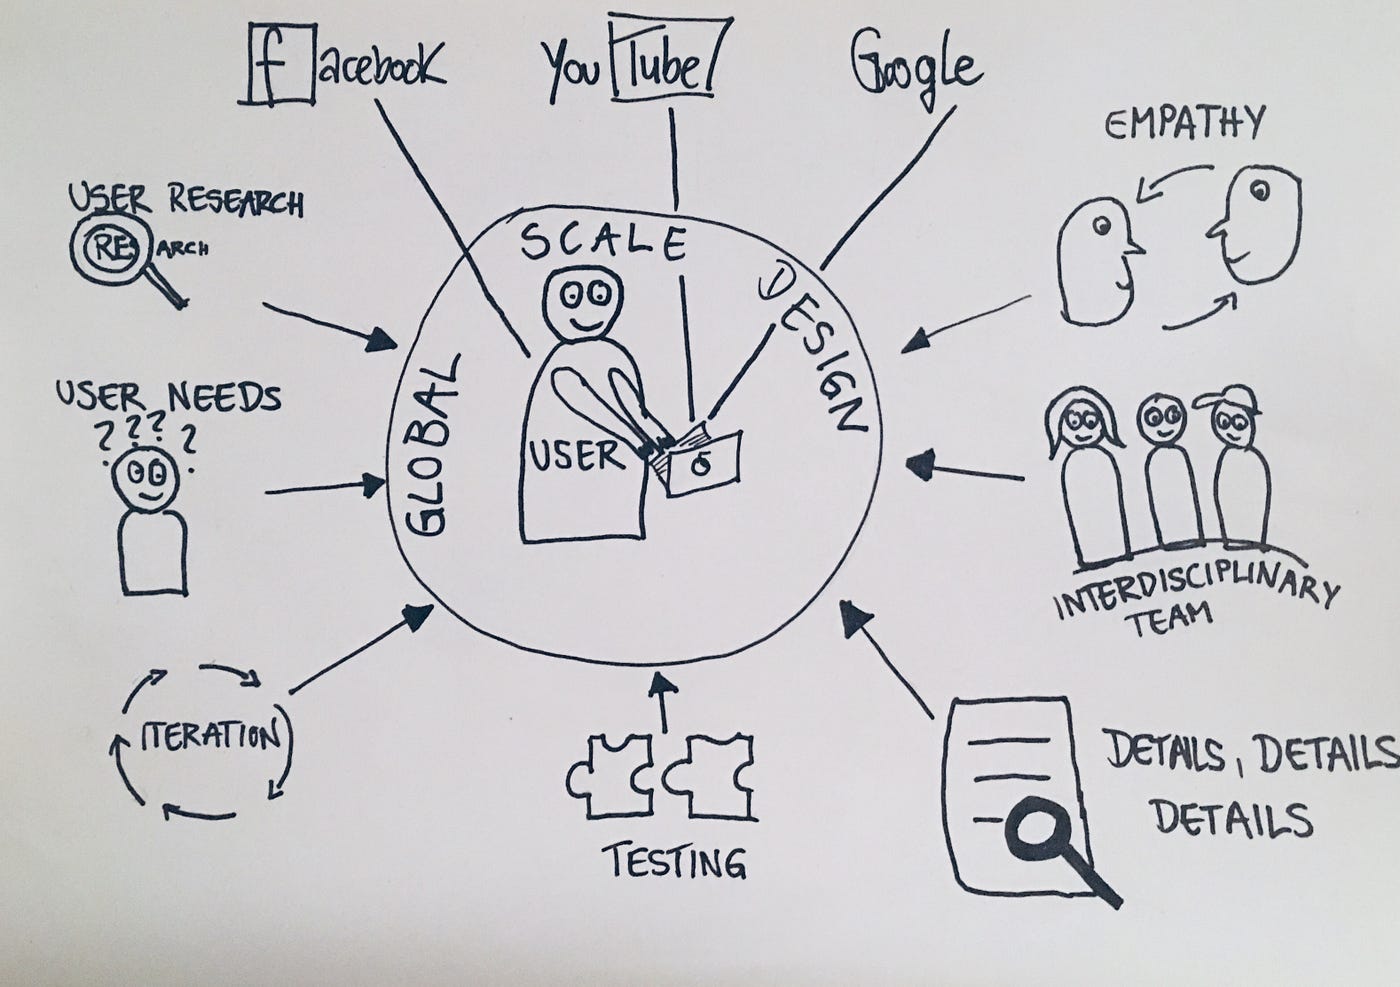 facebook
YouTube
Google
EMPATHY
USER RESEARCH
RESEARCH
SCALE
DESIGN
GLOBAL
USER NEEDS
? ? ? ?
USER
INTERDISCIPLINARY
TEAM
ITERATION
DETAILS, DETAILS
DETAILS
TESTING